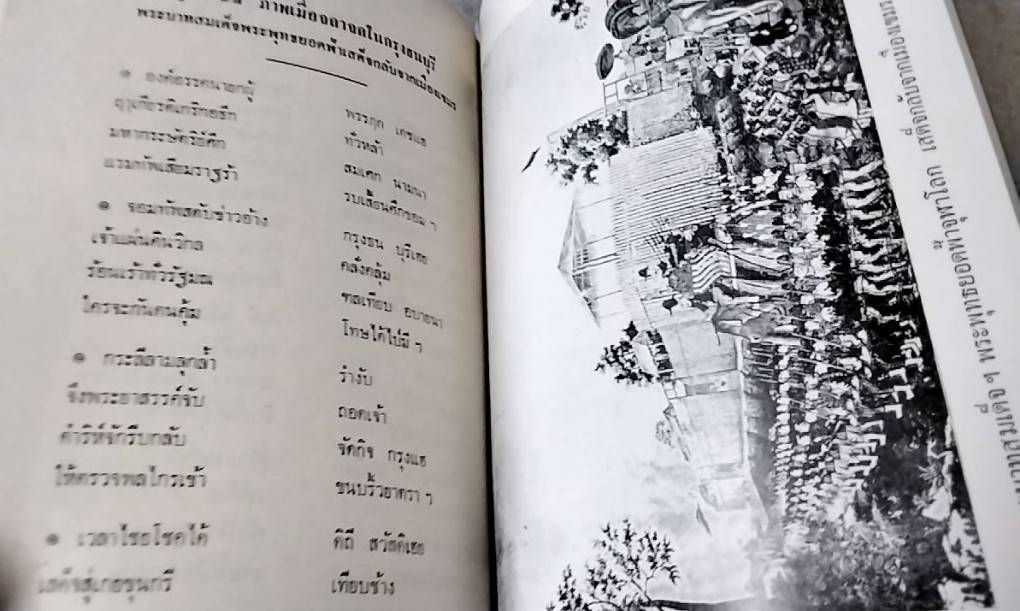 ภาพเมืองถางคในกรุงธนบุรี
พระบาทสมเด็จพระพุทธยอดฟ้าเสด็จกลับจากเมืองเขมร
๏ องค์อรรคนายกผู้ พรรฦก เดชแฮ
ฤๅเกียรติเกริกอธึก ทั่วหล้า
มหากระษัตริย์ศึก สมเดศ นามนา
แรมทัพเสียมราฐร้า รบเสี้ยนศึกขอม ฯ
๏ จอมทัพสดับข่าวอ้าง กรุงธน บุรีเฮย
เจ้าแผ่นดินวิกล คลั่งคลุ้ม
ร้อนเร้าทั่วรัฐมณ ฑลเทียบ อบายนา
ใครจะกันตนคุ้ม โทษได้ไป่มี ฯ
๏ กระลีลามลุกล้ำ รำงับ
จึงพระอาสรรค์จับ ถอดเจ้า
ดำริห์จักรีบกลับ จัดกิจ กรุงแฮ
ให้ตรวจพลไกรเข้า ขนบริ้วยาตรา ฯ
๏ เวลาไชยโชคได้ ดิถี สวัสดิเฮย
เสด็จสู่เกยขุนกรี เทียบช้าง
บาทสมเด็จ ฯ พระพุทธยอดฟ้าจุฬาโลก เสด็จกลับจากเมืองเขมร